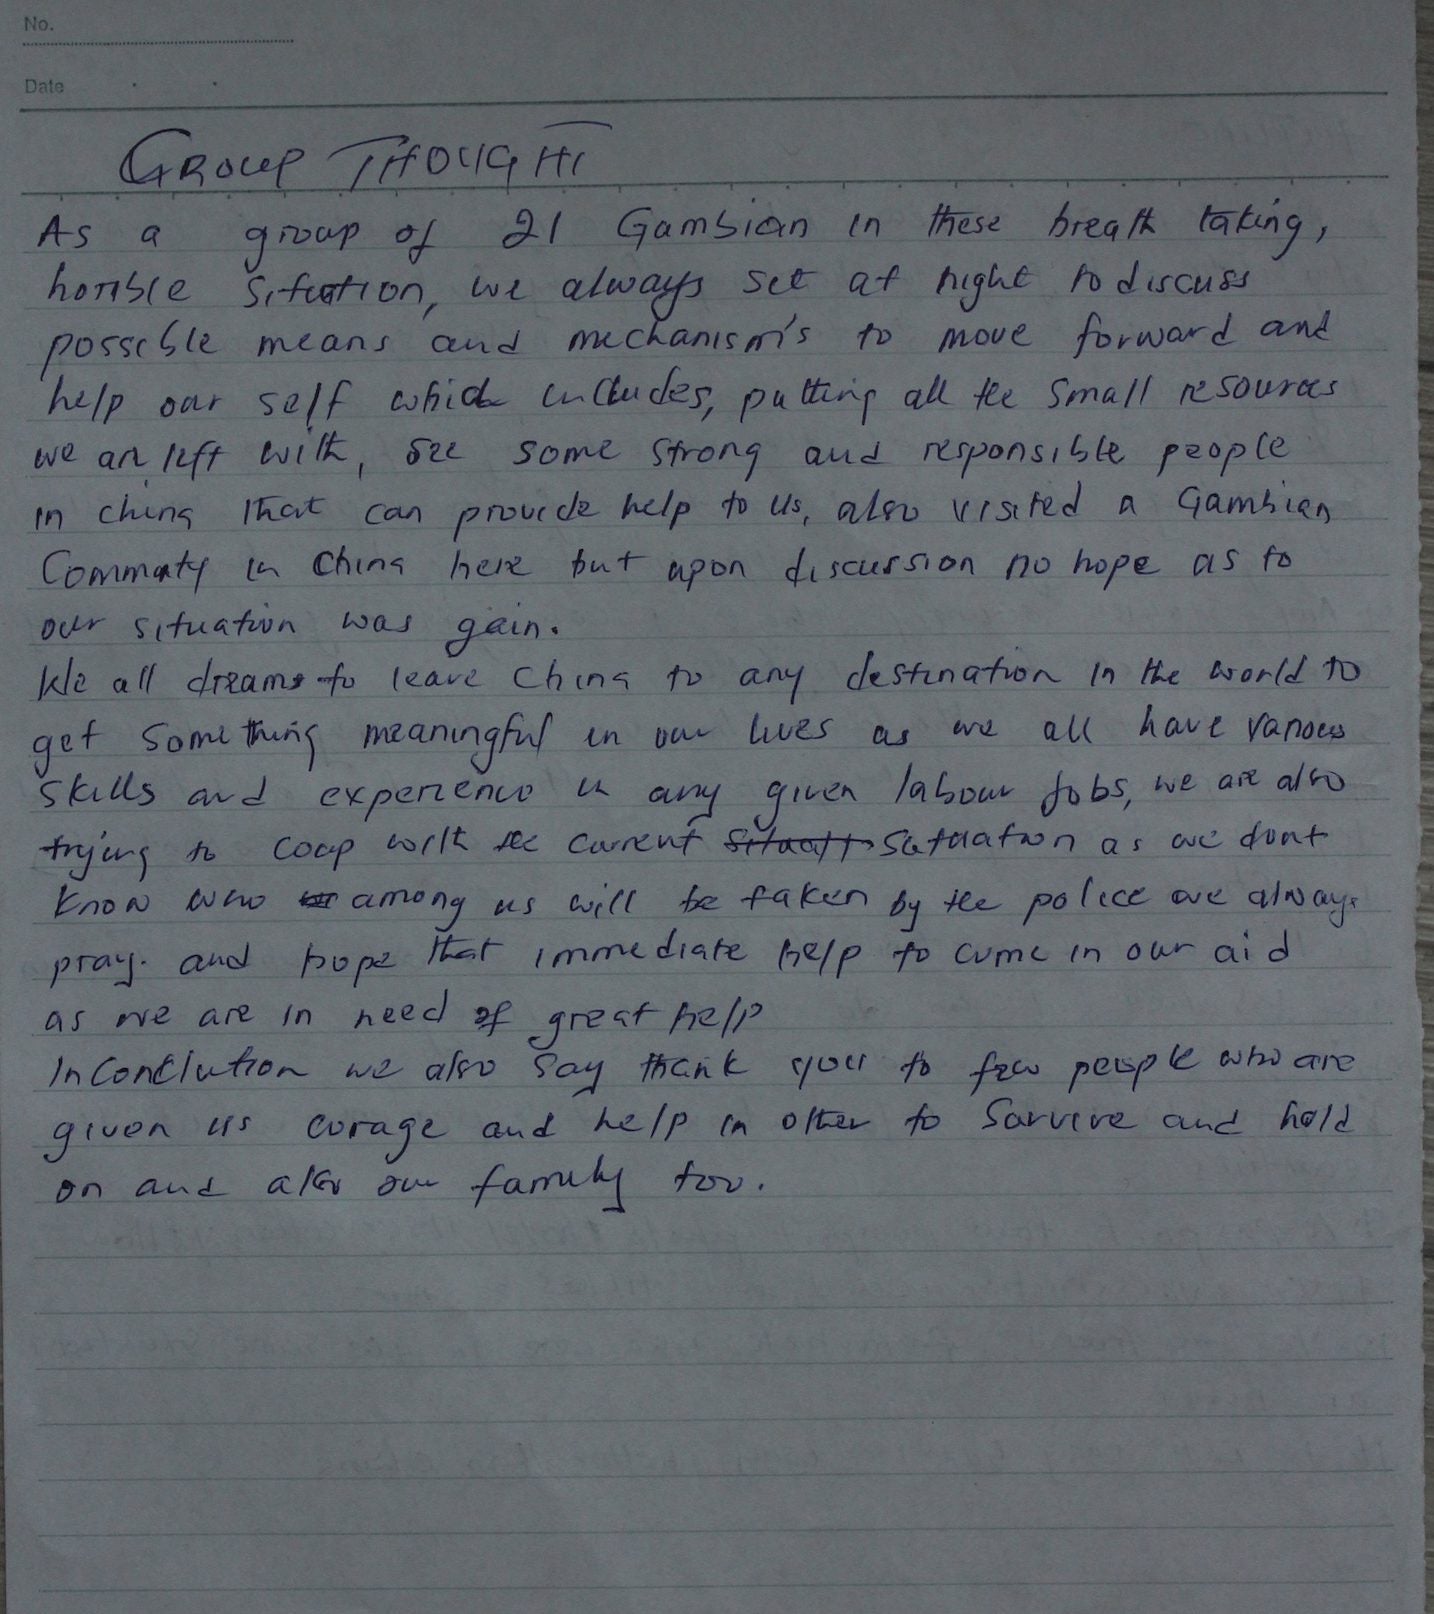 No.
Date
GROUP THOUGHT
As a group of 21 Gambian in these breath taking,
horrible situation, we always set at night to discuss
possible means and mechanism's to move forward and
help our self which includes, putting all the small resources
we are left with, see some strong and responsible people
in china that can provide help to us, also visited a Gambian
Commuty in China here but upon discussion no hope as to
our situation was gain.
We all dreams to leave China to any destination in the world to
get something meaningful in our lives as we all have various
skills and experience in any given labour jobs, we are also
trying to coup with the current situation as we dont
know who among us will be taken by the police we always
pray. and hope that immediate help to come in our aid
as we are in need of great help
In Conclution we also say thank you to few people who are
given us corage and help in other to Survive and hold
on and also our family too.